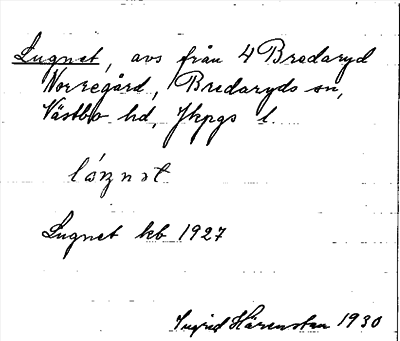 Lugnet, avs från 4 Bredaryd
Norregård, Bredaryds sn,
Västbo hd, Jkpgs l.
Lugnet kb 1927
Ingrid Härenstam 1930